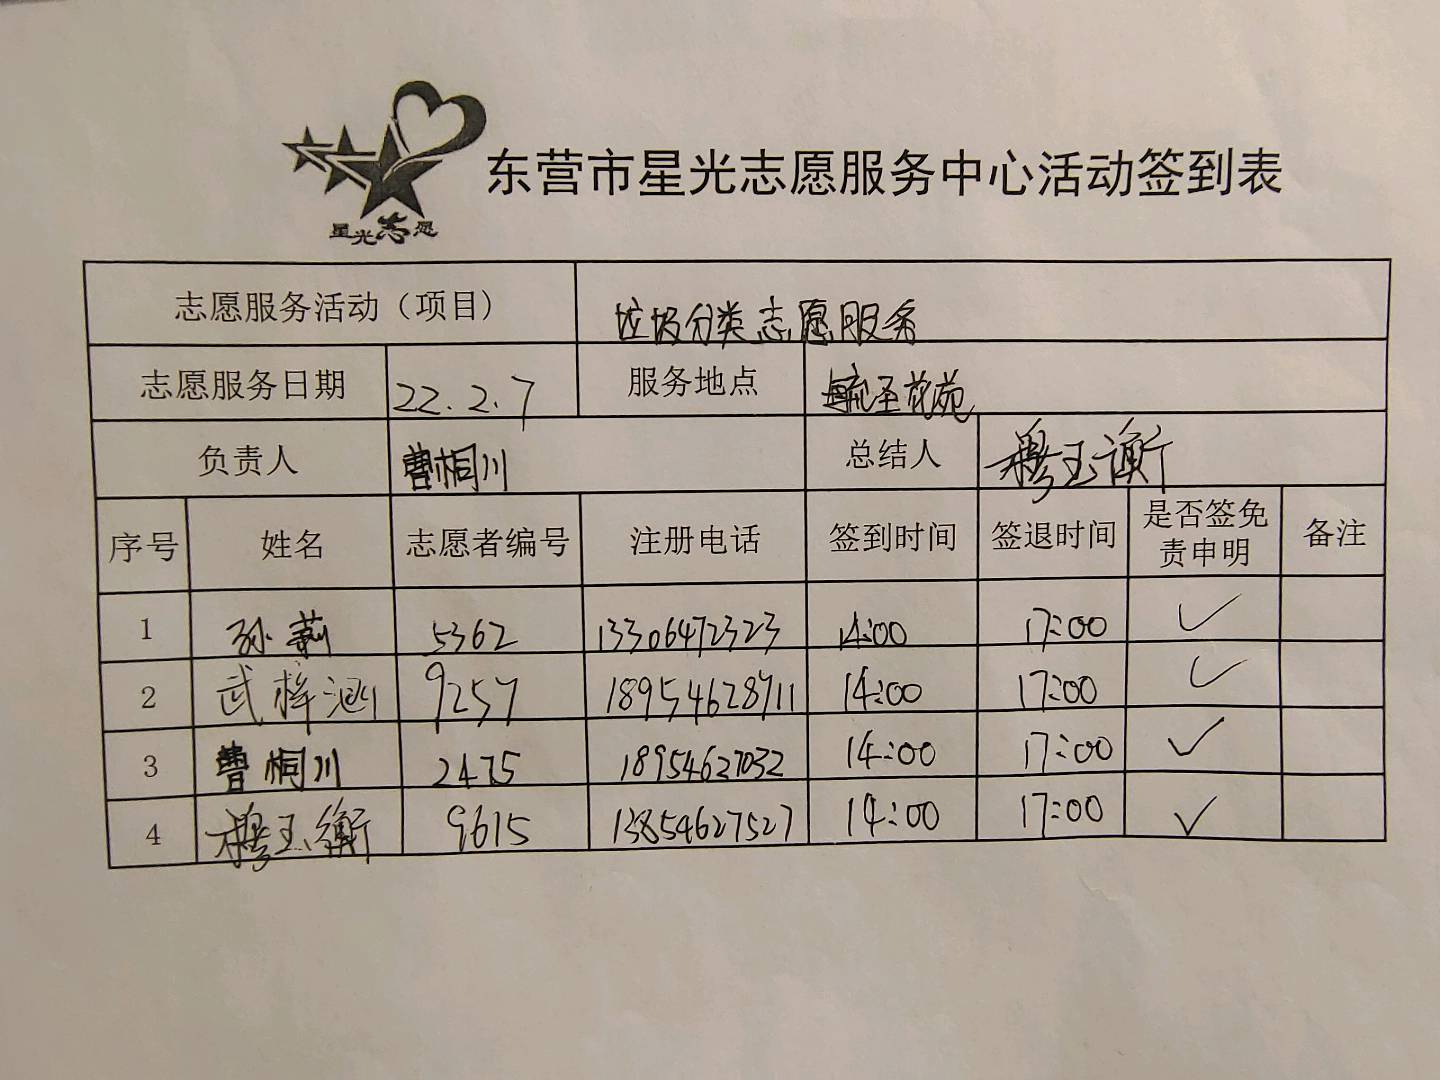 星光志愿
东营市星光志愿服务中心活动签到表
志愿服务活动（项目） 垃圾分类志愿服务
志愿服务日期 22.2.7 服务地点 毓圣花苑
负责人 曹桐川 总结人 穆玉衡
序号 姓名 志愿者编号 注册电话 签到时间 签退时间 是否签免责申明 备注
1 孙莉 5362 13306472323 14:00 17:00 ✓
2 武梓涵 9257 18954628711 14:00 17:00 ✓
3 曹桐川 2475 18954627032 14:00 17:00 ✓
4 穆玉衡 9615 13854627527 14:00 17:00 ✓